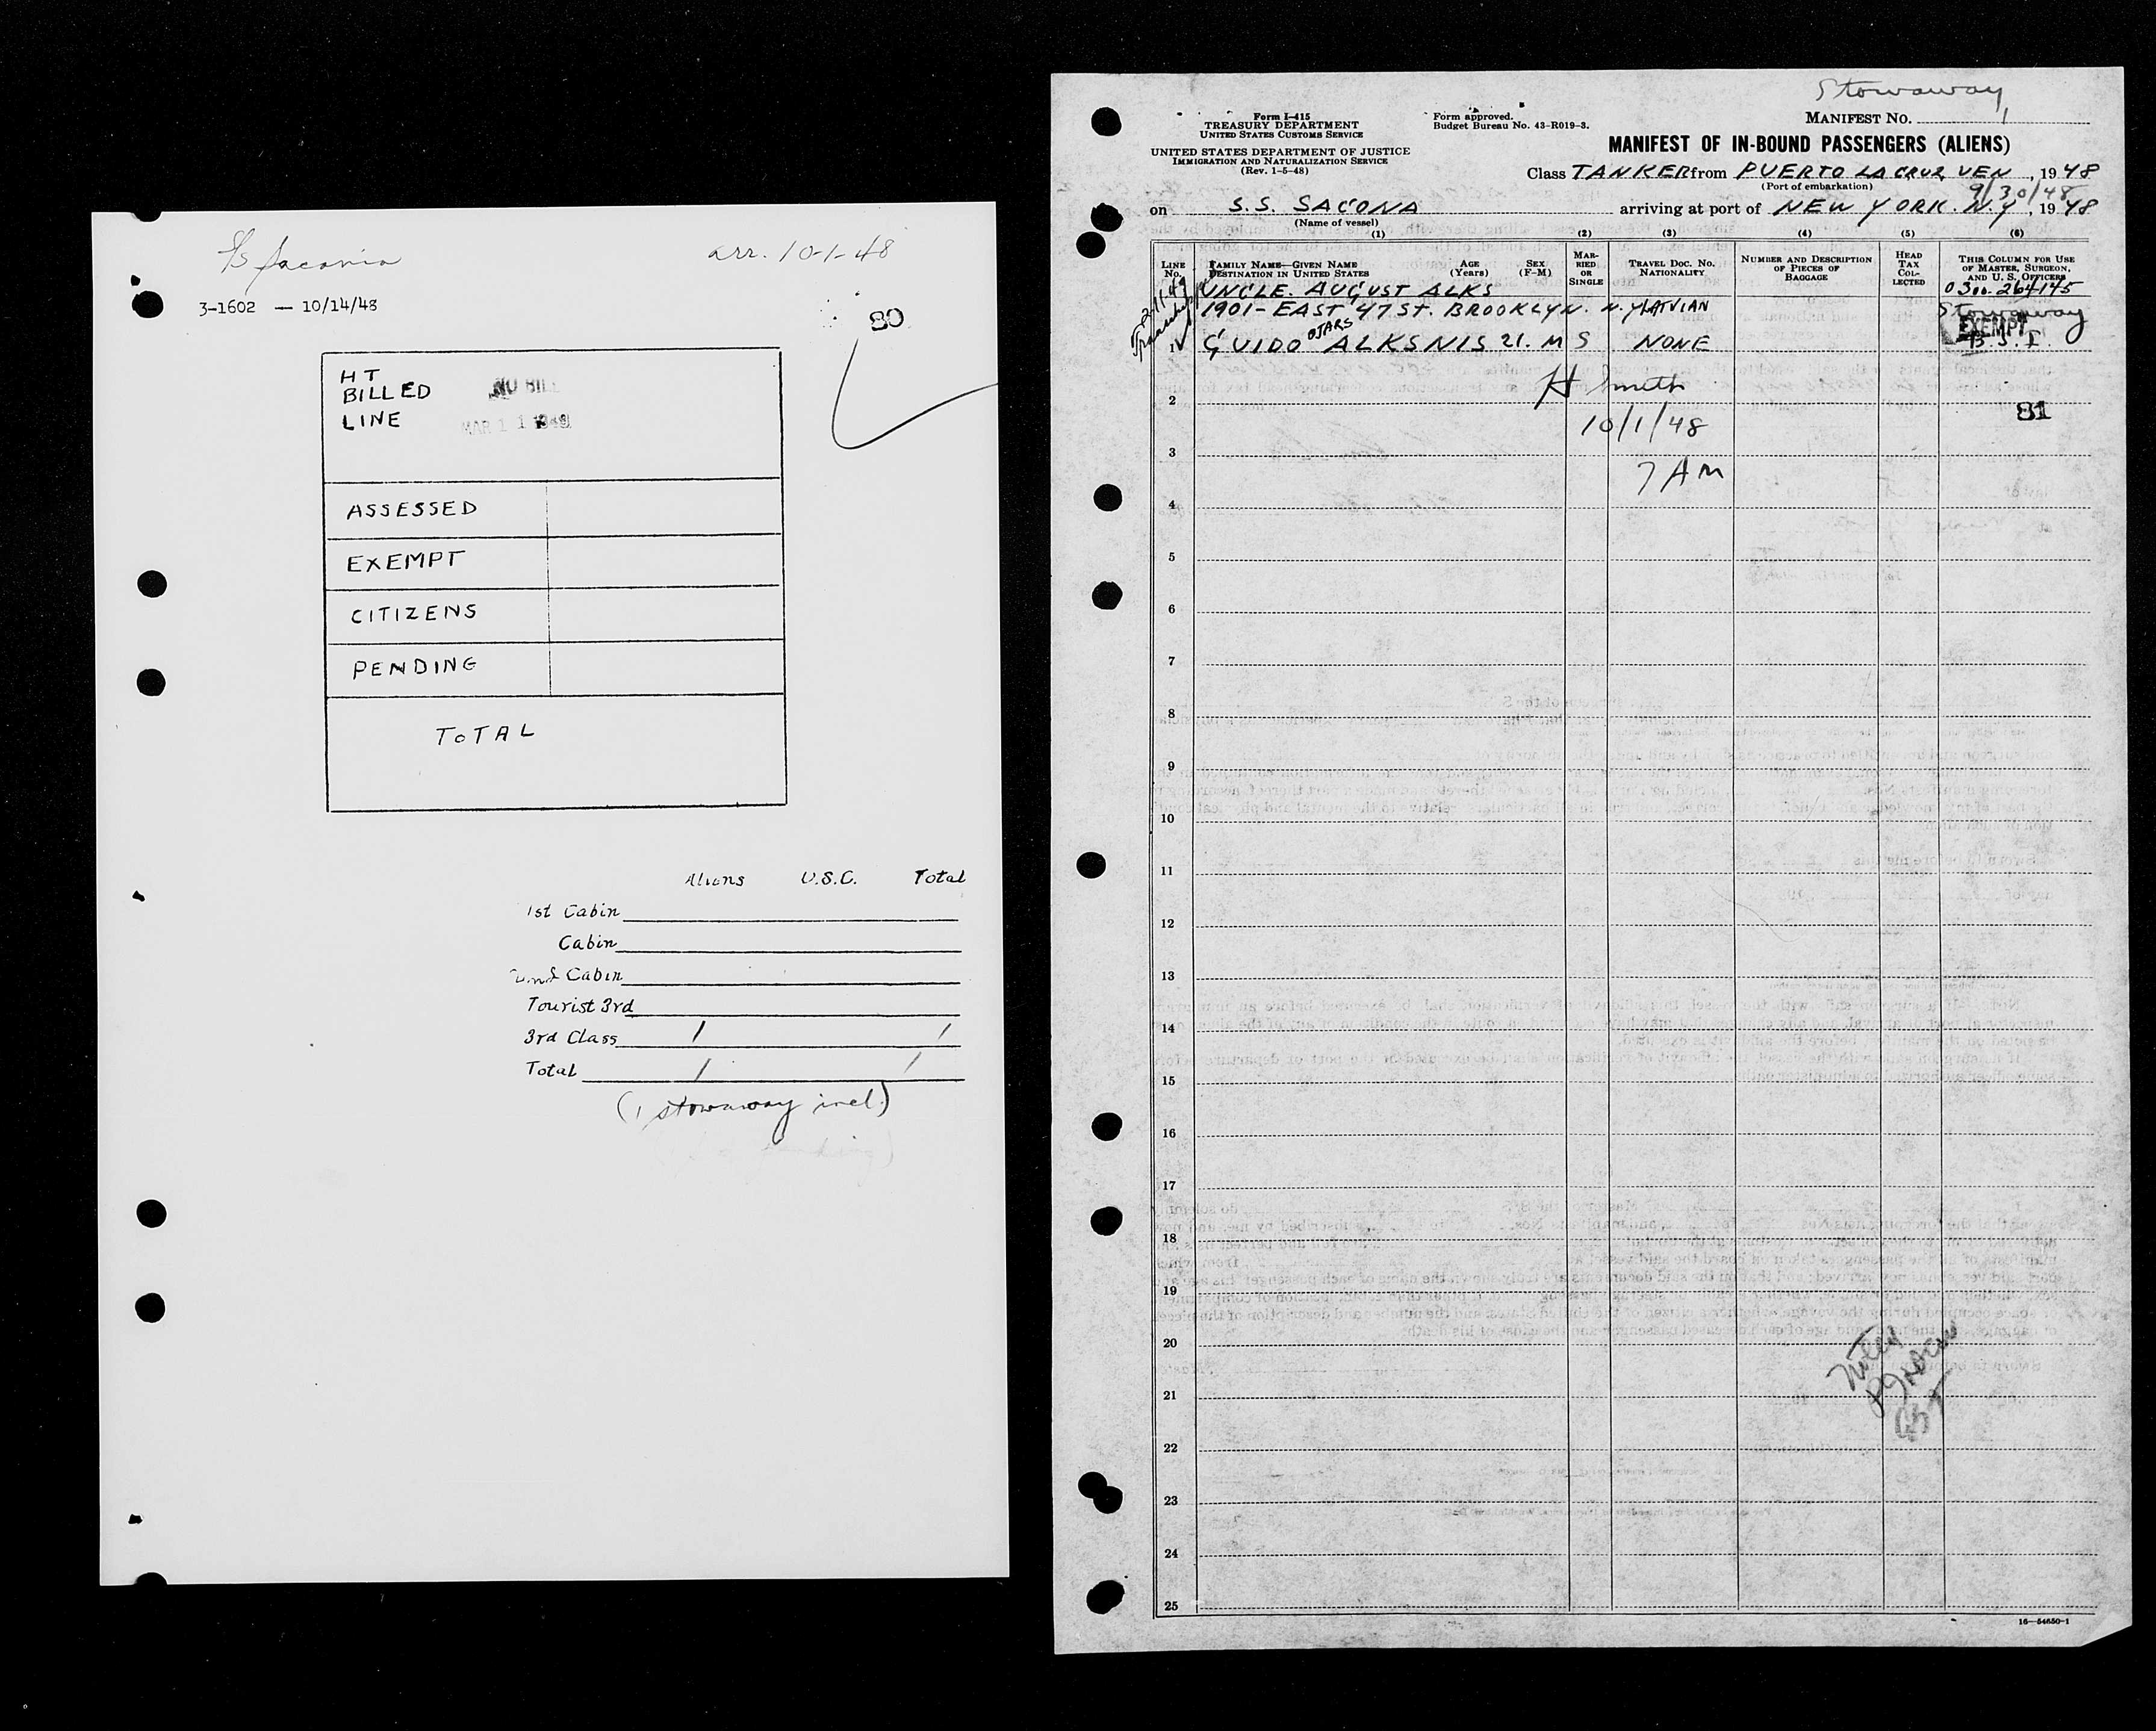 S/S Saconia
arr. 10-1-48
3-1602 — 10/14/48
80
HT
BILLED
LINE
NO BILL
MAR 11 1949
ASSESSED
EXEMPT
CITIZENS
PENDING
TOTAL
Aliens U.S.C. Total
1st Cabin
Cabin
2nd Cabin
Tourist 3rd
3rd Class 1 1
Total 1 1
(1 stowaway incl.)
Stowaway
Form I-415
TREASURY DEPARTMENT
UNITED STATES CUSTOMS SERVICE
UNITED STATES DEPARTMENT OF JUSTICE
IMMIGRATION AND NATURALIZATION SERVICE
(Rev. 1-5-48)
Form approved.
Budget Bureau No. 43-R019-3.
MANIFEST NO. 1
MANIFEST OF IN-BOUND PASSENGERS (ALIENS)
Class TANKER from PUERTO LA CRUZ VEN, 1948
(Port of embarkation)
9/30/48
on S.S. SACONA arriving at port of NEW YORK. N.Y, 1948
(Name of vessel)
(1) (2) (3) (4) (5) (6)
LINE NO.
FAMILY NAME—GIVEN NAME
DESTINATION IN UNITED STATES
AGE (Years)
SEX (F-M)
MARRIED OR SINGLE
TRAVEL DOC. NO.
NATIONALITY
NUMBER AND DESCRIPTION OF PIECES OF BAGGAGE
HEAD TAX COLLECTED
THIS COLUMN FOR USE OF MASTER, SURGEON, AND U. S. OFFICERS
0300-264145
UNCLE. AUGUST ALKS
1901-EAST 47 ST. BROOKLYN. N.Y LATVIAN
Stowaway
EXEMPT
B.S.I.
OTARS
1 GUIDO ALKSNIS 21. M S NONE
H Smith
2
81
10/1/48
3
7 AM
4
5
6
7
8
9
10
11
12
13
14
15
16
17
18
19
20
21
22
23
24
25
16—54650-1